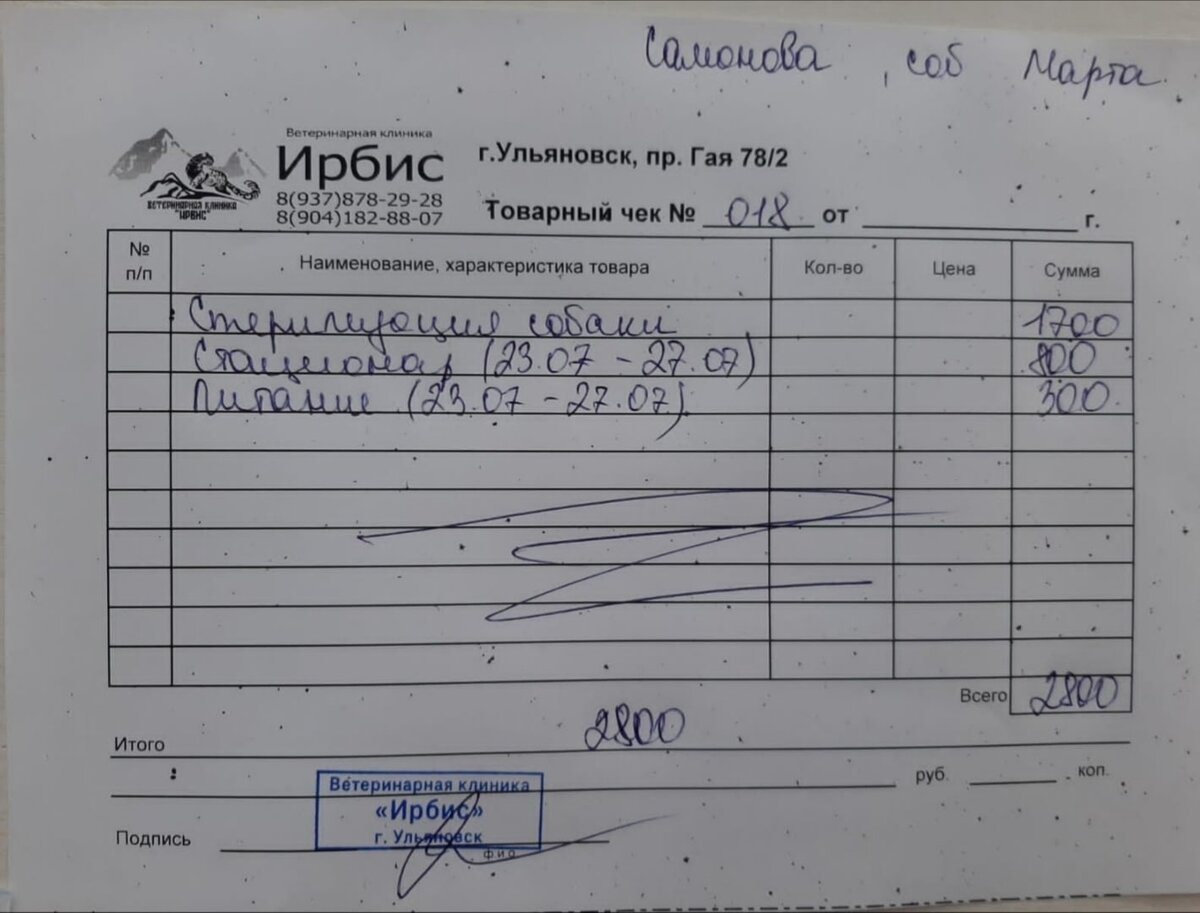 Самонова, соб Марта
Ветеринарная клиника
Ирбис
8(937)878-29-28
8(904)182-88-07
ВЕТЕРИНАРНАЯ КЛИНИКА
"ИРБИС"
г.Ульяновск, пр. Гая 78/2
Товарный чек № 018 от г.
№ п/п Наименование, характеристика товара Кол-во Цена Сумма
Стерилизация собаки 1700
Стационар (23.07 - 27.07) 800
Питание (23.07 - 27.07) 300
Всего 2800
Итого 2800
руб. коп.
Ветеринарная клиника
«Ирбис»
г. Ульяновск
Подпись
фио